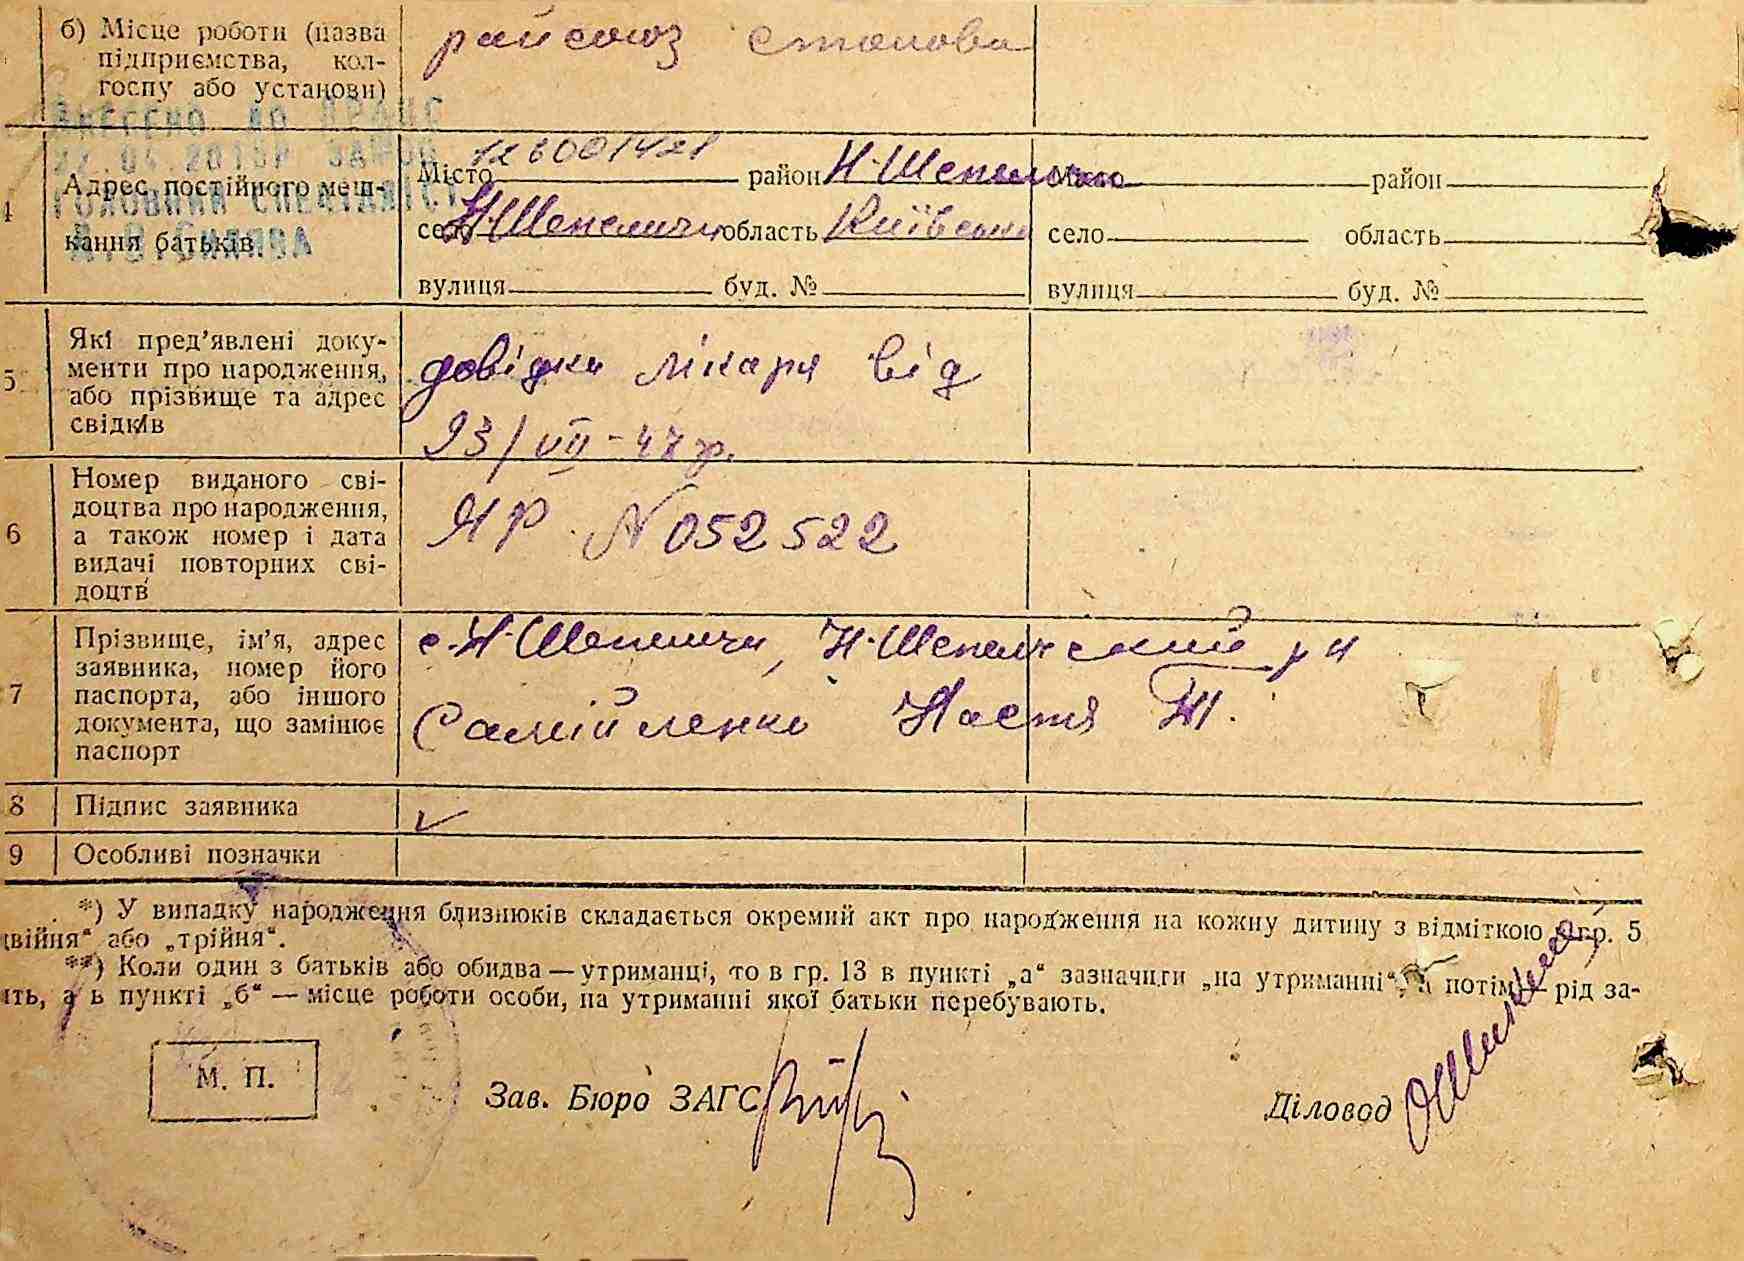 б) Місце роботи (назва
підприємства, кол-
госпу або установи)
райсоюз столова
ВНЕСЕНО ДО ДРАЦС
27.04.2018р.
ГОЛОВНИЙ СПЕЦІАЛІСТ
4 Адрес постійного меш-
кання батьків
Місто район Н-Шепеличі
село Н-Шепеличи область Київська
вулиця буд. №
Місто район
село область
вулиця буд. №
5 Які пред’явлені доку-
менти про народження,
або прізвище та адрес
свідків
довідка лікаря від
23/VII-47р.
6 Номер виданого сві-
доцтва про народження,
а також номер і дата
видачі повторних сві-
доцтв
ЯР N 052522
7 Прізвище, ім’я, адрес
заявника, номер його
паспорта, або іншого
документа, що замінює
паспорт
с. Н-Шепеличи, Н-Шепеличский р-н
Самійленко Настя
8 Підпис заявника
9 Особливі позначки
*) У випадку народження близнюків складається окремий акт про народження на кожну дитину з відміткою в гр. 5
двійня“ або „трійня“.
**) Коли один з батьків або обидва — утриманці, то в гр. 13 в пункті „а“ зазначити „на утриманні“, а потім — рід за-
ять, а в пункті „б“ — місце роботи особи, на утриманні якої батьки перебувають.
М. П.
Зав. Бюро ЗАГС
Діловод